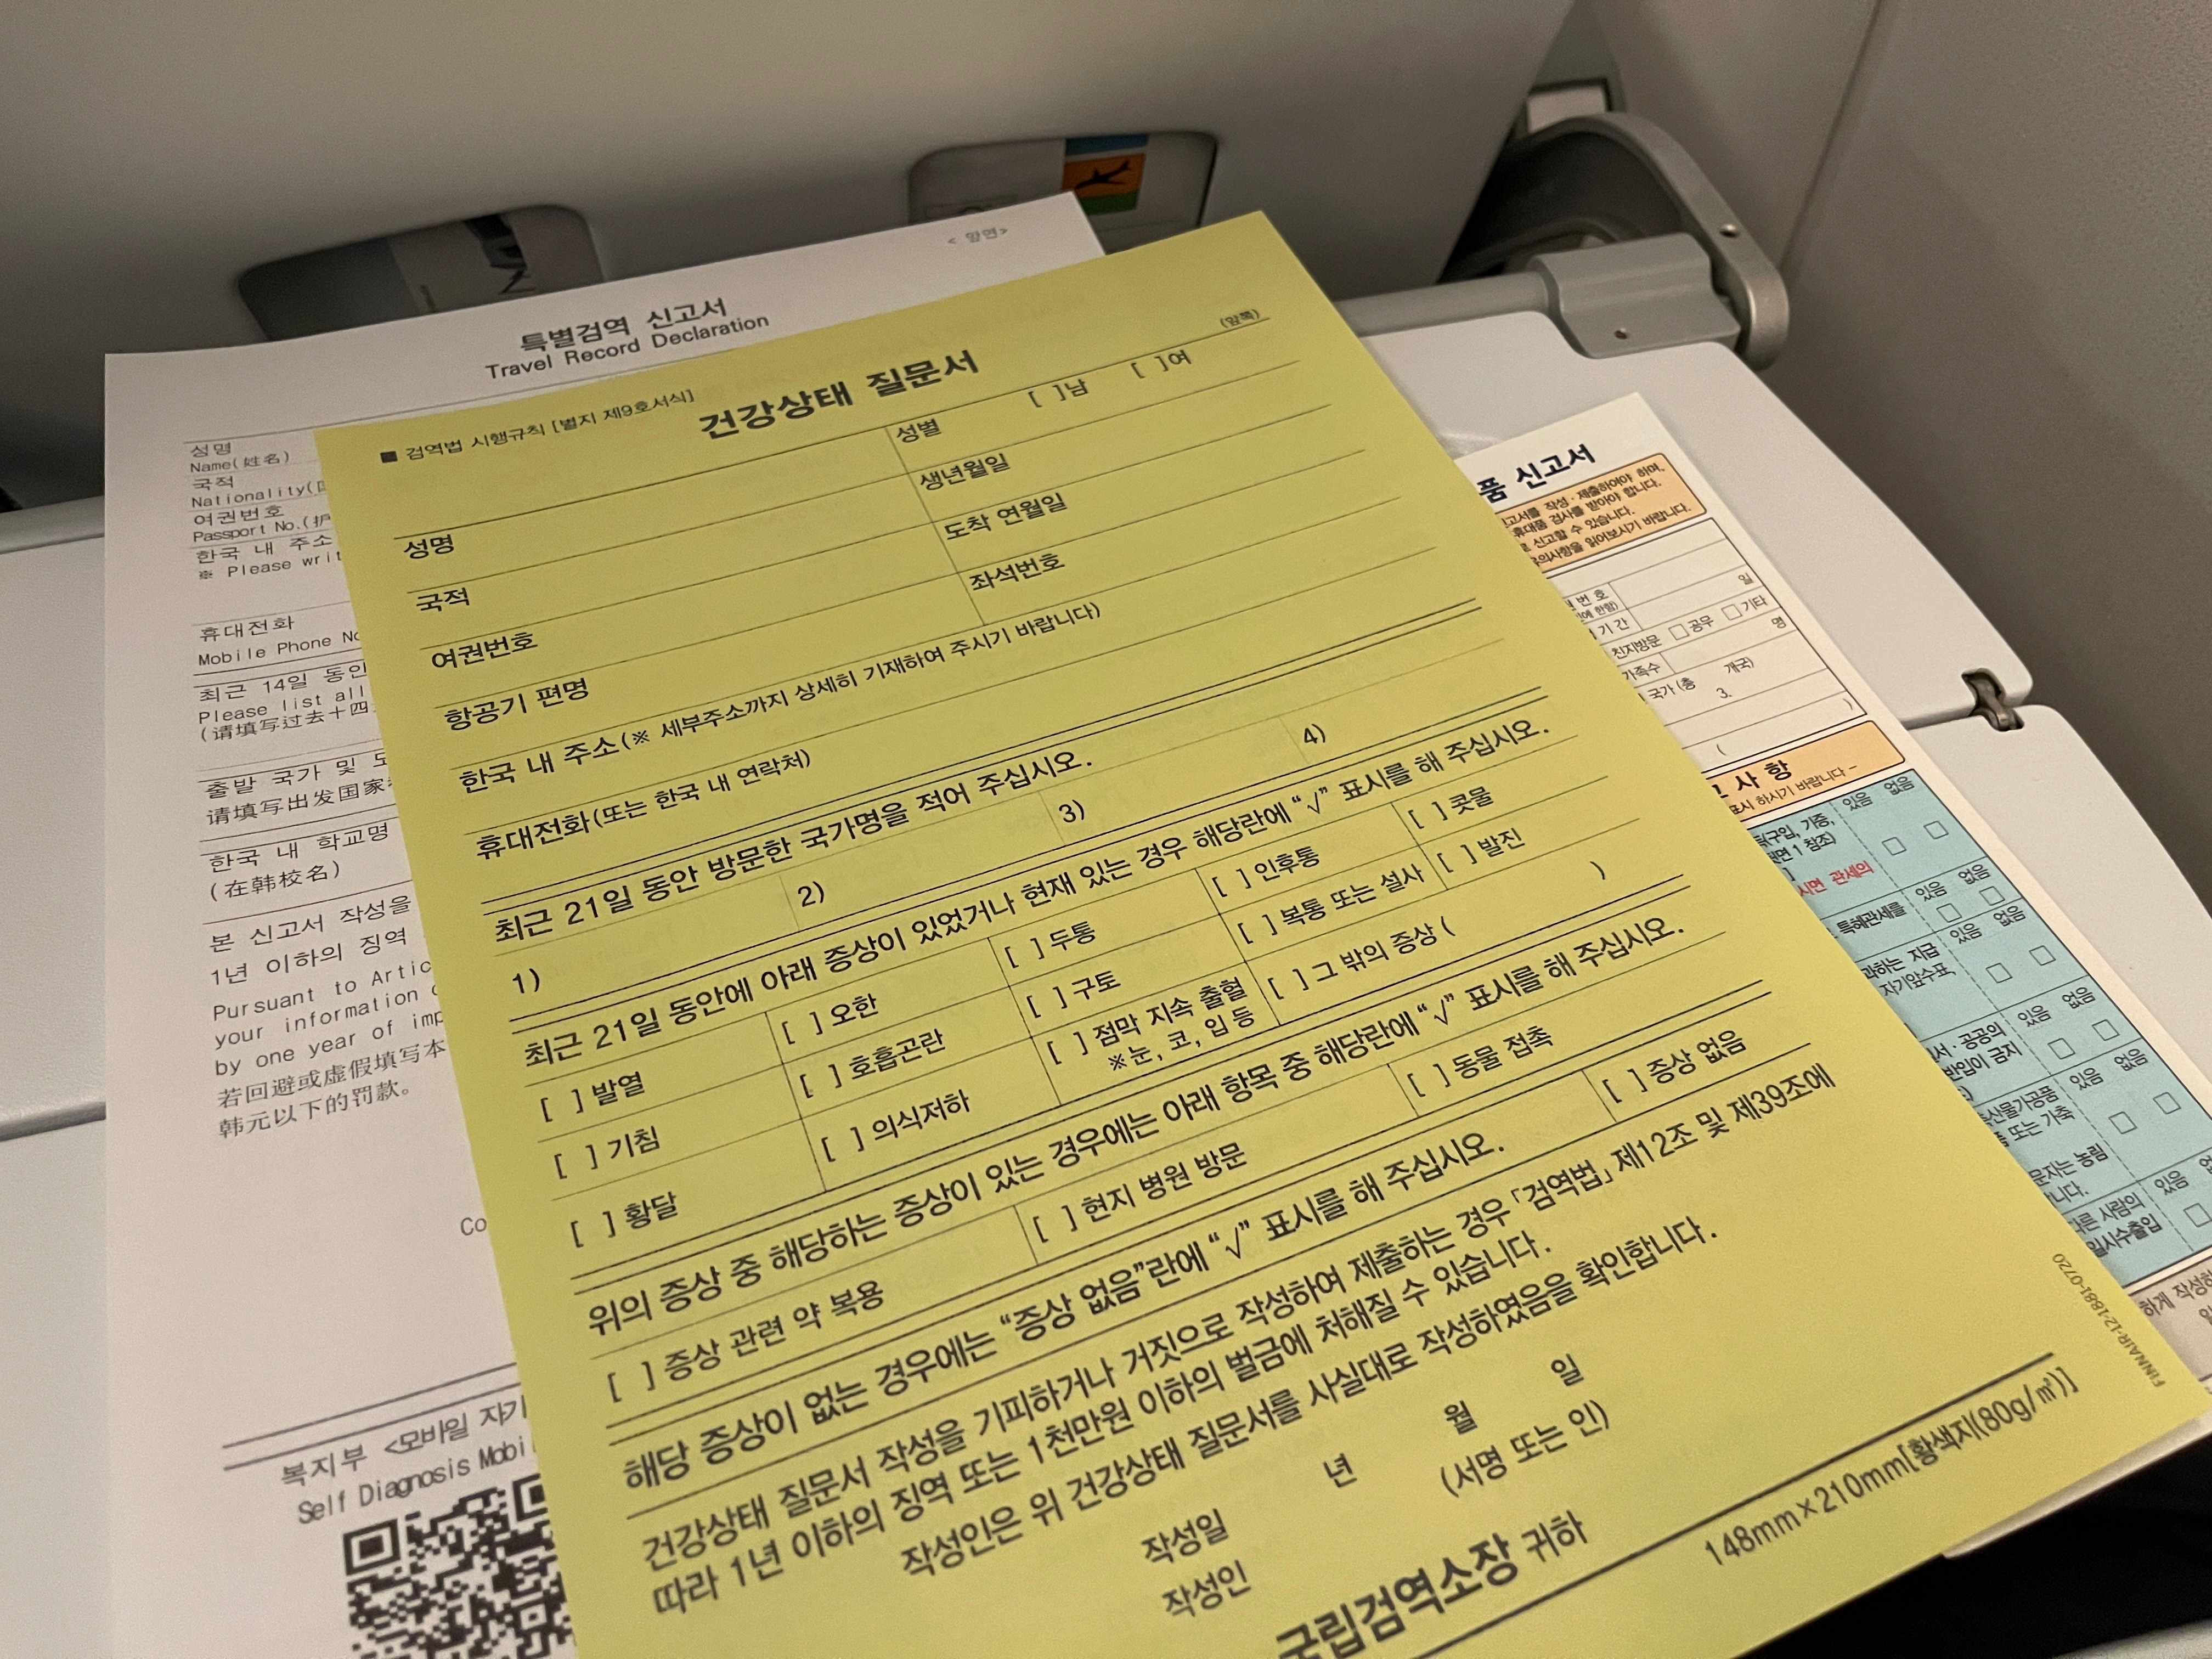 < 앞면>
특별검역 신고서
Travel Record Declaration
성명
Name(姓名)
국적
Nationality(
여권번호
Passport No.(护
한국 내 주소
※ Please writ
휴대전화
Mobile Phone No
최근 14일 동안
Please list all
(请填写过去十四
출발 국가 및 도
请填写出发国家
한국 내 학교명
(在韩校名)
본 신고서 작성을
1년 이하의 징역
Pursuant to Artic
your information
by one year of imp
若回避或虚假填写本
韩元以下的罚款。
Co
복지부 <모바일 자기
Self Diagnosis Mobi
■ 검역법 시행규칙 [별지 제9호서식]
(앞쪽)
건강상태 질문서
성명
성별 [ ]남 [ ]여
국적
생년월일
여권번호
도착 연월일
항공기 편명
좌석번호
한국 내 주소(※ 세부주소까지 상세히 기재하여 주시기 바랍니다)
휴대전화(또는 한국 내 연락처)
최근 21일 동안 방문한 국가명을 적어 주십시오.
1) 2) 3) 4)
최근 21일 동안에 아래 증상이 있었거나 현재 있는 경우 해당란에 “√” 표시를 해 주십시오.
[ ] 발열 [ ] 오한 [ ] 두통 [ ] 인후통 [ ] 콧물
[ ] 기침 [ ] 호흡곤란 [ ] 구토 [ ] 복통 또는 설사 [ ] 발진
[ ] 황달 [ ] 의식저하 [ ] 점막 지속 출혈 [ ] 그 밖의 증상 ( )
※눈, 코, 입 등
위의 증상 중 해당하는 증상이 있는 경우에는 아래 항목 중 해당란에 “√” 표시를 해 주십시오.
[ ] 증상 관련 약 복용 [ ] 현지 병원 방문 [ ] 동물 접촉
해당 증상이 없는 경우에는 “증상 없음”란에 “√” 표시를 해 주십시오. [ ] 증상 없음
건강상태 질문서 작성을 기피하거나 거짓으로 작성하여 제출하는 경우 「검역법」 제12조 및 제39조에
따라 1년 이하의 징역 또는 1천만원 이하의 벌금에 처해질 수 있습니다.
작성인은 위 건강상태 질문서를 사실대로 작성하였음을 확인합니다.
작성일 년 월 일
작성인 (서명 또는 인)
국립검역소장 귀하
148mm×210mm[황색지(80g/㎡)]
품 신고서
신고서를 작성·제출하여야 하며,
휴대품 검사를 받아야 합니다.
로 신고할 수 있습니다.
유의사항을 읽어보시기 바랍니다.
번 호
에 한함)
기 간 일
친지방문 □공무 □기타
가족수 명
국가 (총 개국)
3.
)
(
고 사 항
표시 하시기 바랍니다 -
있음 없음
구입, 기증,
면 1 참조)
]
시면 관세의
있음 없음
특혜관세를
있음 없음
과하는 지급
자기앞수표,
있음 없음
서·공공의
반입이 금지
있음 없음
축산물가공품
또는 가축
문자는 농림
니다.
있음
다른 사람의
일시수출입
하게 작성하
FINNAIR-12-1881-0720